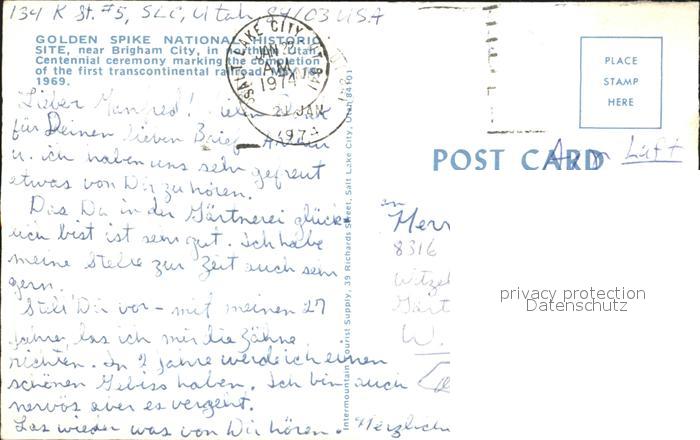 134 K St. #5, SLC, Utah 84103 USA
GOLDEN SPIKE NATIONAL HISTORIC
SITE, near Brigham City, in northern Utah.
Centennial ceremony marking the completion
of the first transcontinental railroad, May
1969.
SALT LAKE CITY
JAN 22
AM
1974
22 JAN
197
PLACE
STAMP
HERE
POST CARD
Luft
Lieber Manfred! Vielen Dank
für Deinen lieben Brief.
u. ich haben uns sehr gefreut
etwas von Dir zu hören.
Das Du in der Gärtnerei glück-
lich bist ist sehr gut. Ich habe
meine Stelle zur Zeit auch sehr
gern.
Stell Dir vor - mit meinen 27
Jahre, las ich mir die Zähne
richten. In 2 Jahre werde ich einen
schönen Gebiss haben. Ich bin auch
nervös aber es vergeht.
Las wieder was von Dir hören.
Herzlich
Intermountain Tourist Supply, 39 Richards Street, Salt Lake City, Utah 84101
an
Herr
8316
Gärt
W.
privacy protection
Datenschutz